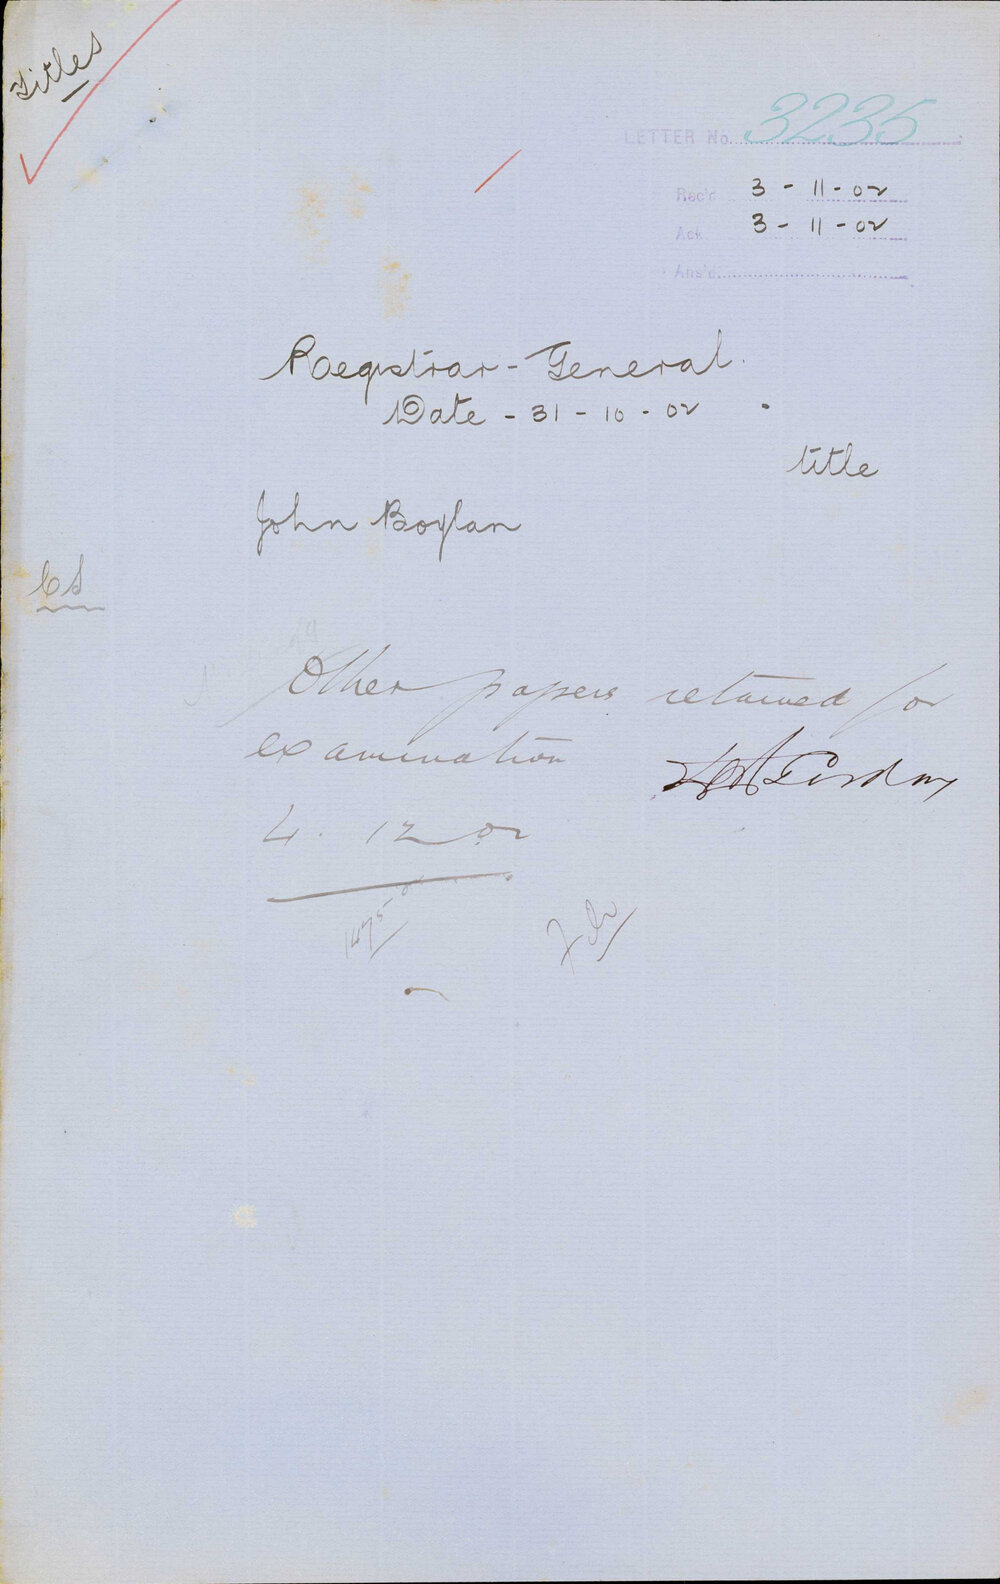 Titles
LETTER No. 3235
Rec'd 3-11-02
Ack 3-11-02
Ans'd
Registrar-General.
Date - 31-10-02
title
John Boylan
CS
Other papers retained for
examination
4. 12 02
1475
File